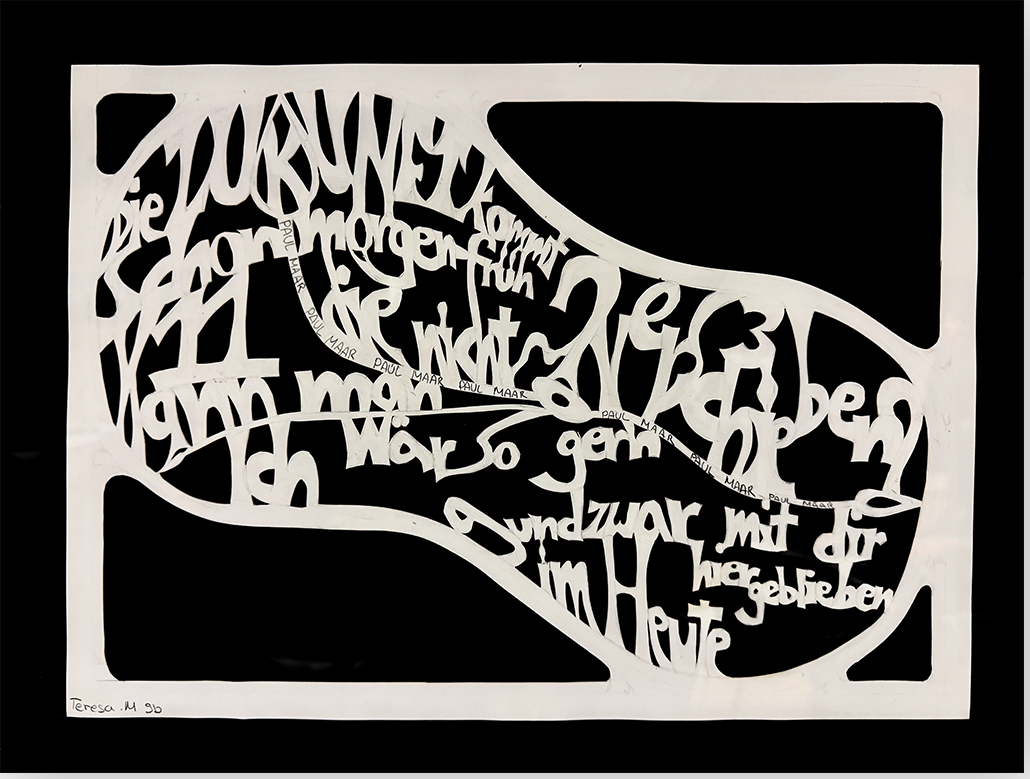 Die ZUKUNFT kommt
schon morgen früh
Kann man die nicht verschieben?
Ich wär so gern
und zwar mit dir
im Heute hiergeblieben
PAUL MAAR PAUL MAAR PAUL MAAR PAUL MAAR PAUL MAAR PAUL MAAR PAUL MAAR
Teresa .M 9b